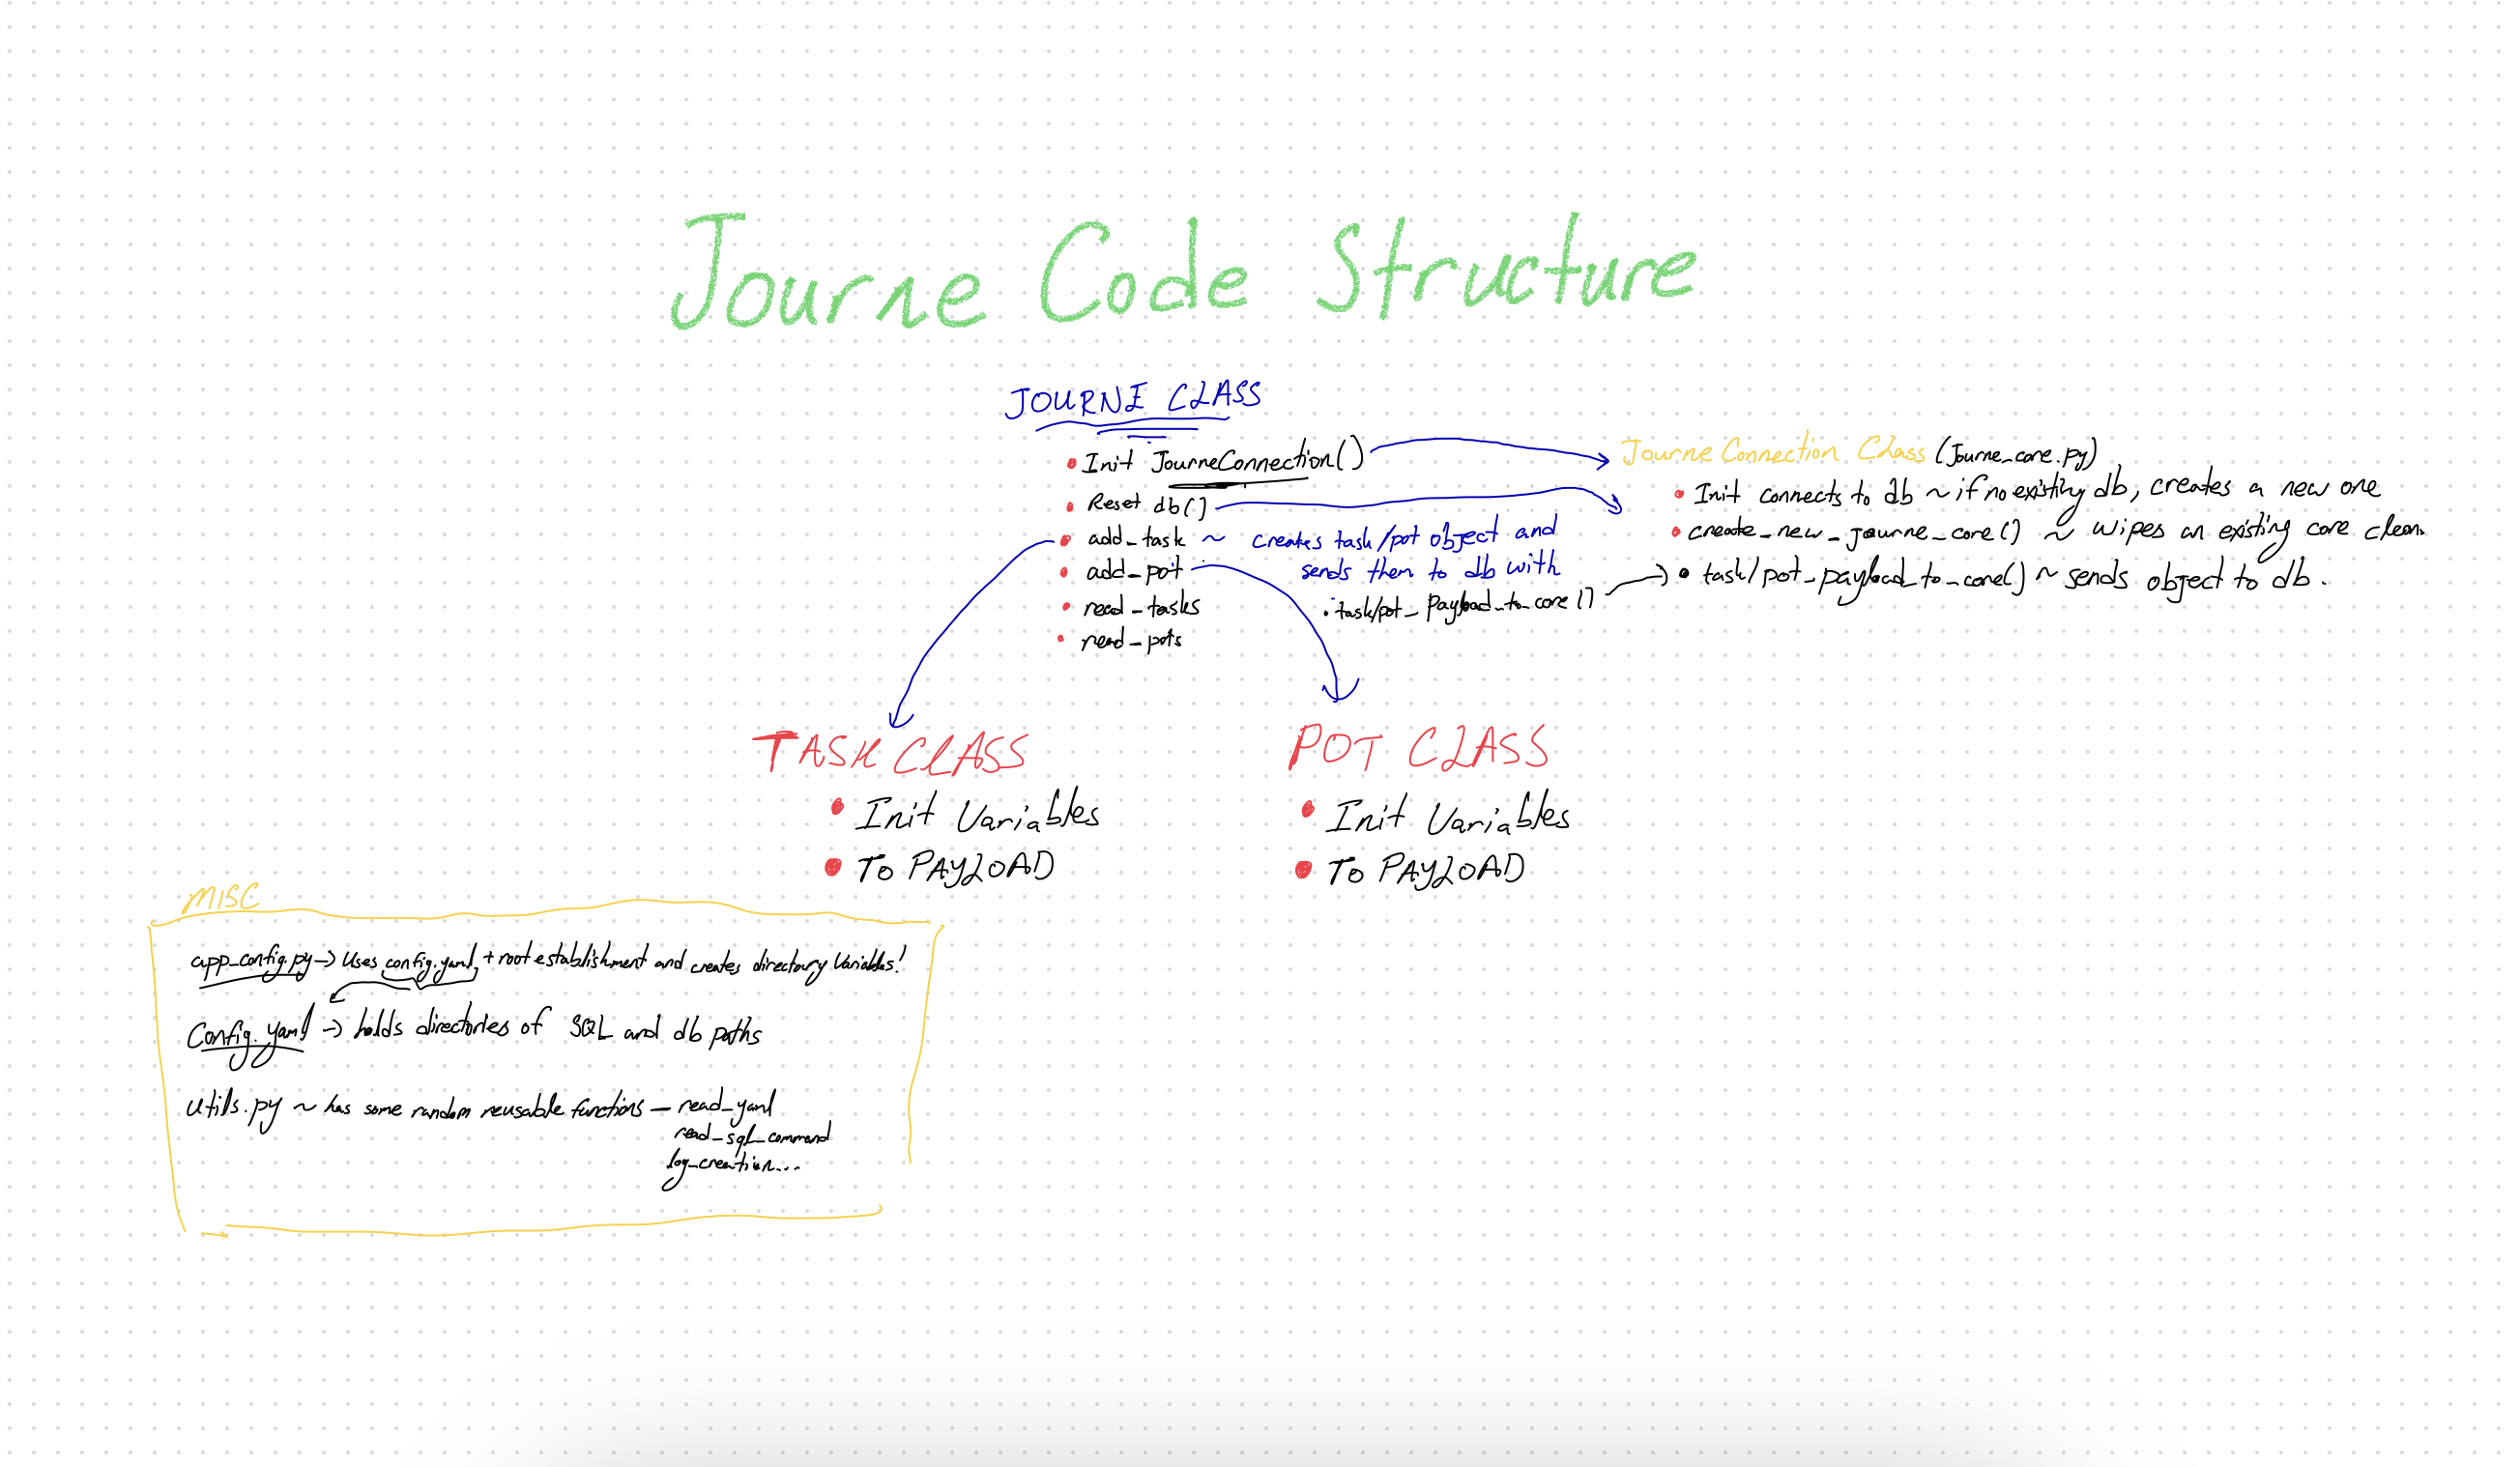 Journe Code Structure
JOURNE CLASS
• Init JourneConnection()
• Reset db()
• add_task ~ creates task/pot object and
sends them to db with
• add_pot
• task/pot_payload_to_core()
• read_tasks
• read_pots
Journe Connection Class (Journe_core.py)
• Init connects to db ~ if no existing db, creates a new one
• create_new_journe_core() ~ wipes an existing core clean.
• task/pot_payload_to_core() ~ sends object to db.
TASK CLASS
• Init Variables
• To PAYLOAD
POT CLASS
• Init Variables
• To PAYLOAD
MISC
app_config.py → Uses config.yaml + root establishment and creates directoury Variables!
Config.yaml → holds directories of SQL and db paths
Utils.py ~ has some random reusable functions — read_yaml
read_sql_command
log_creation...